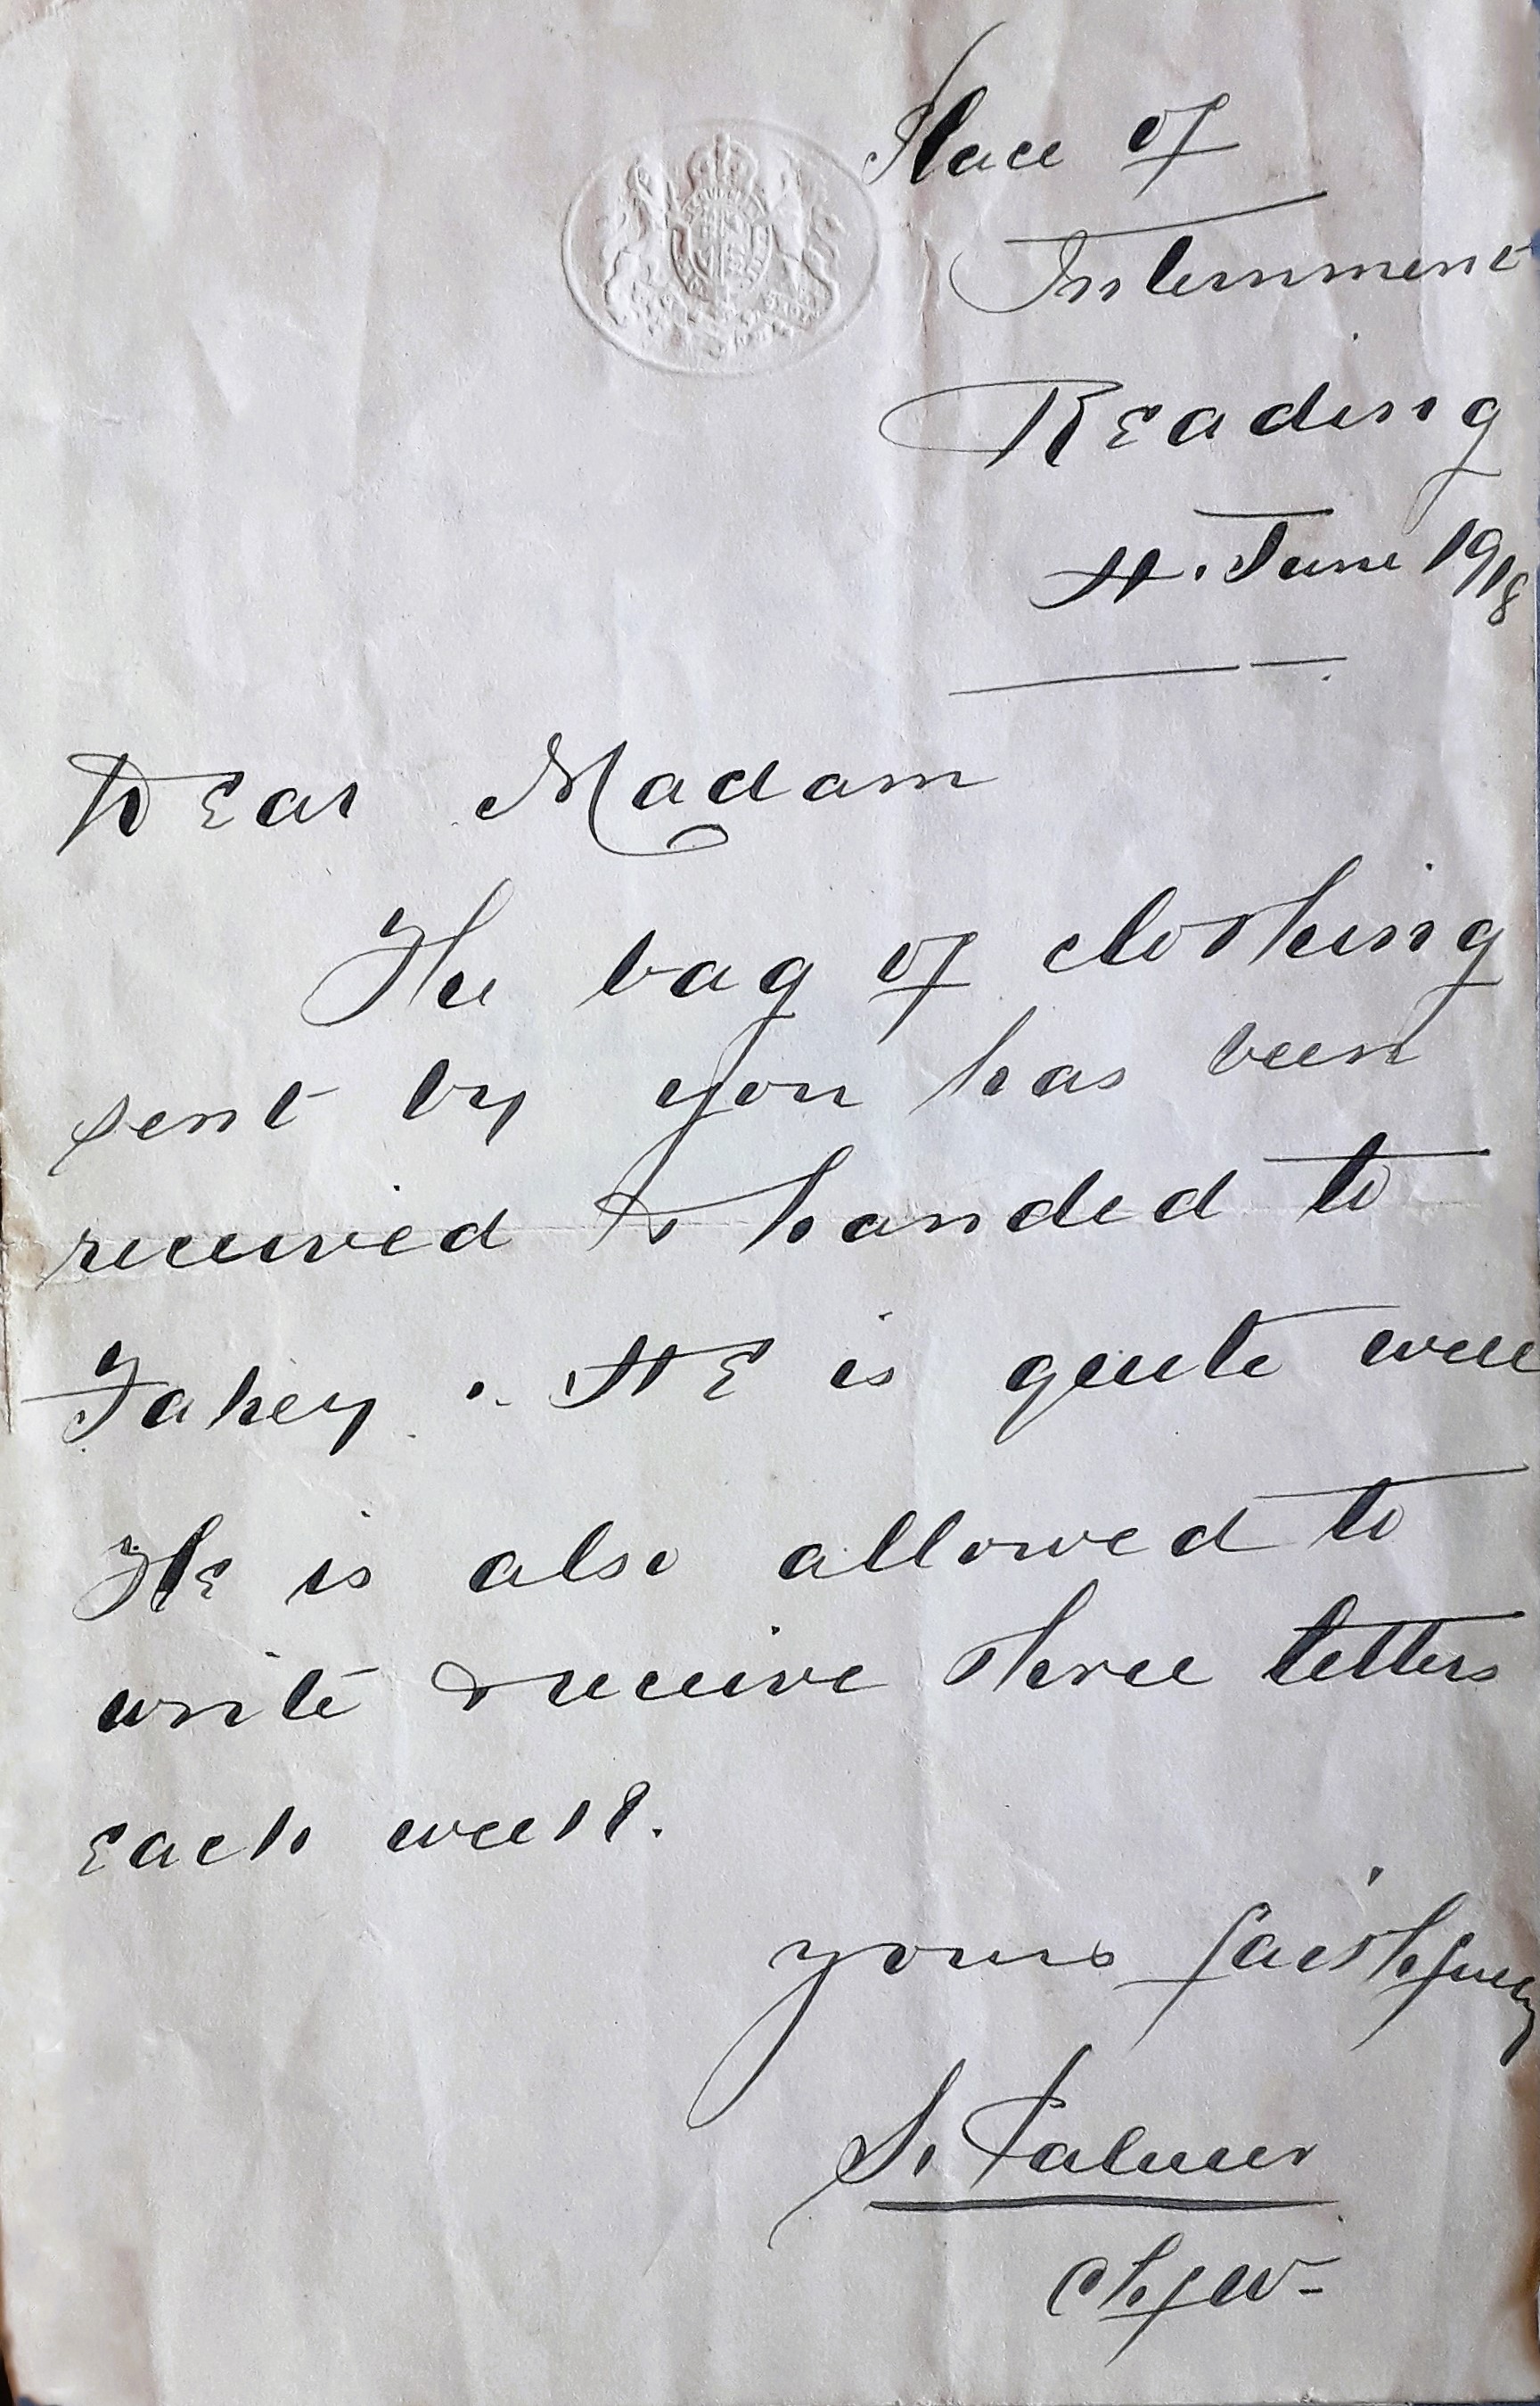 Place of
Internment
Reading
4. June 1918
Dear Madam
The bag of clothing
sent by you has been
received & handed to
Fahey. He is quite well
He is also allowed to
write & receive three letters
each week.
yours faithfully
S. Palmer
Chf W-